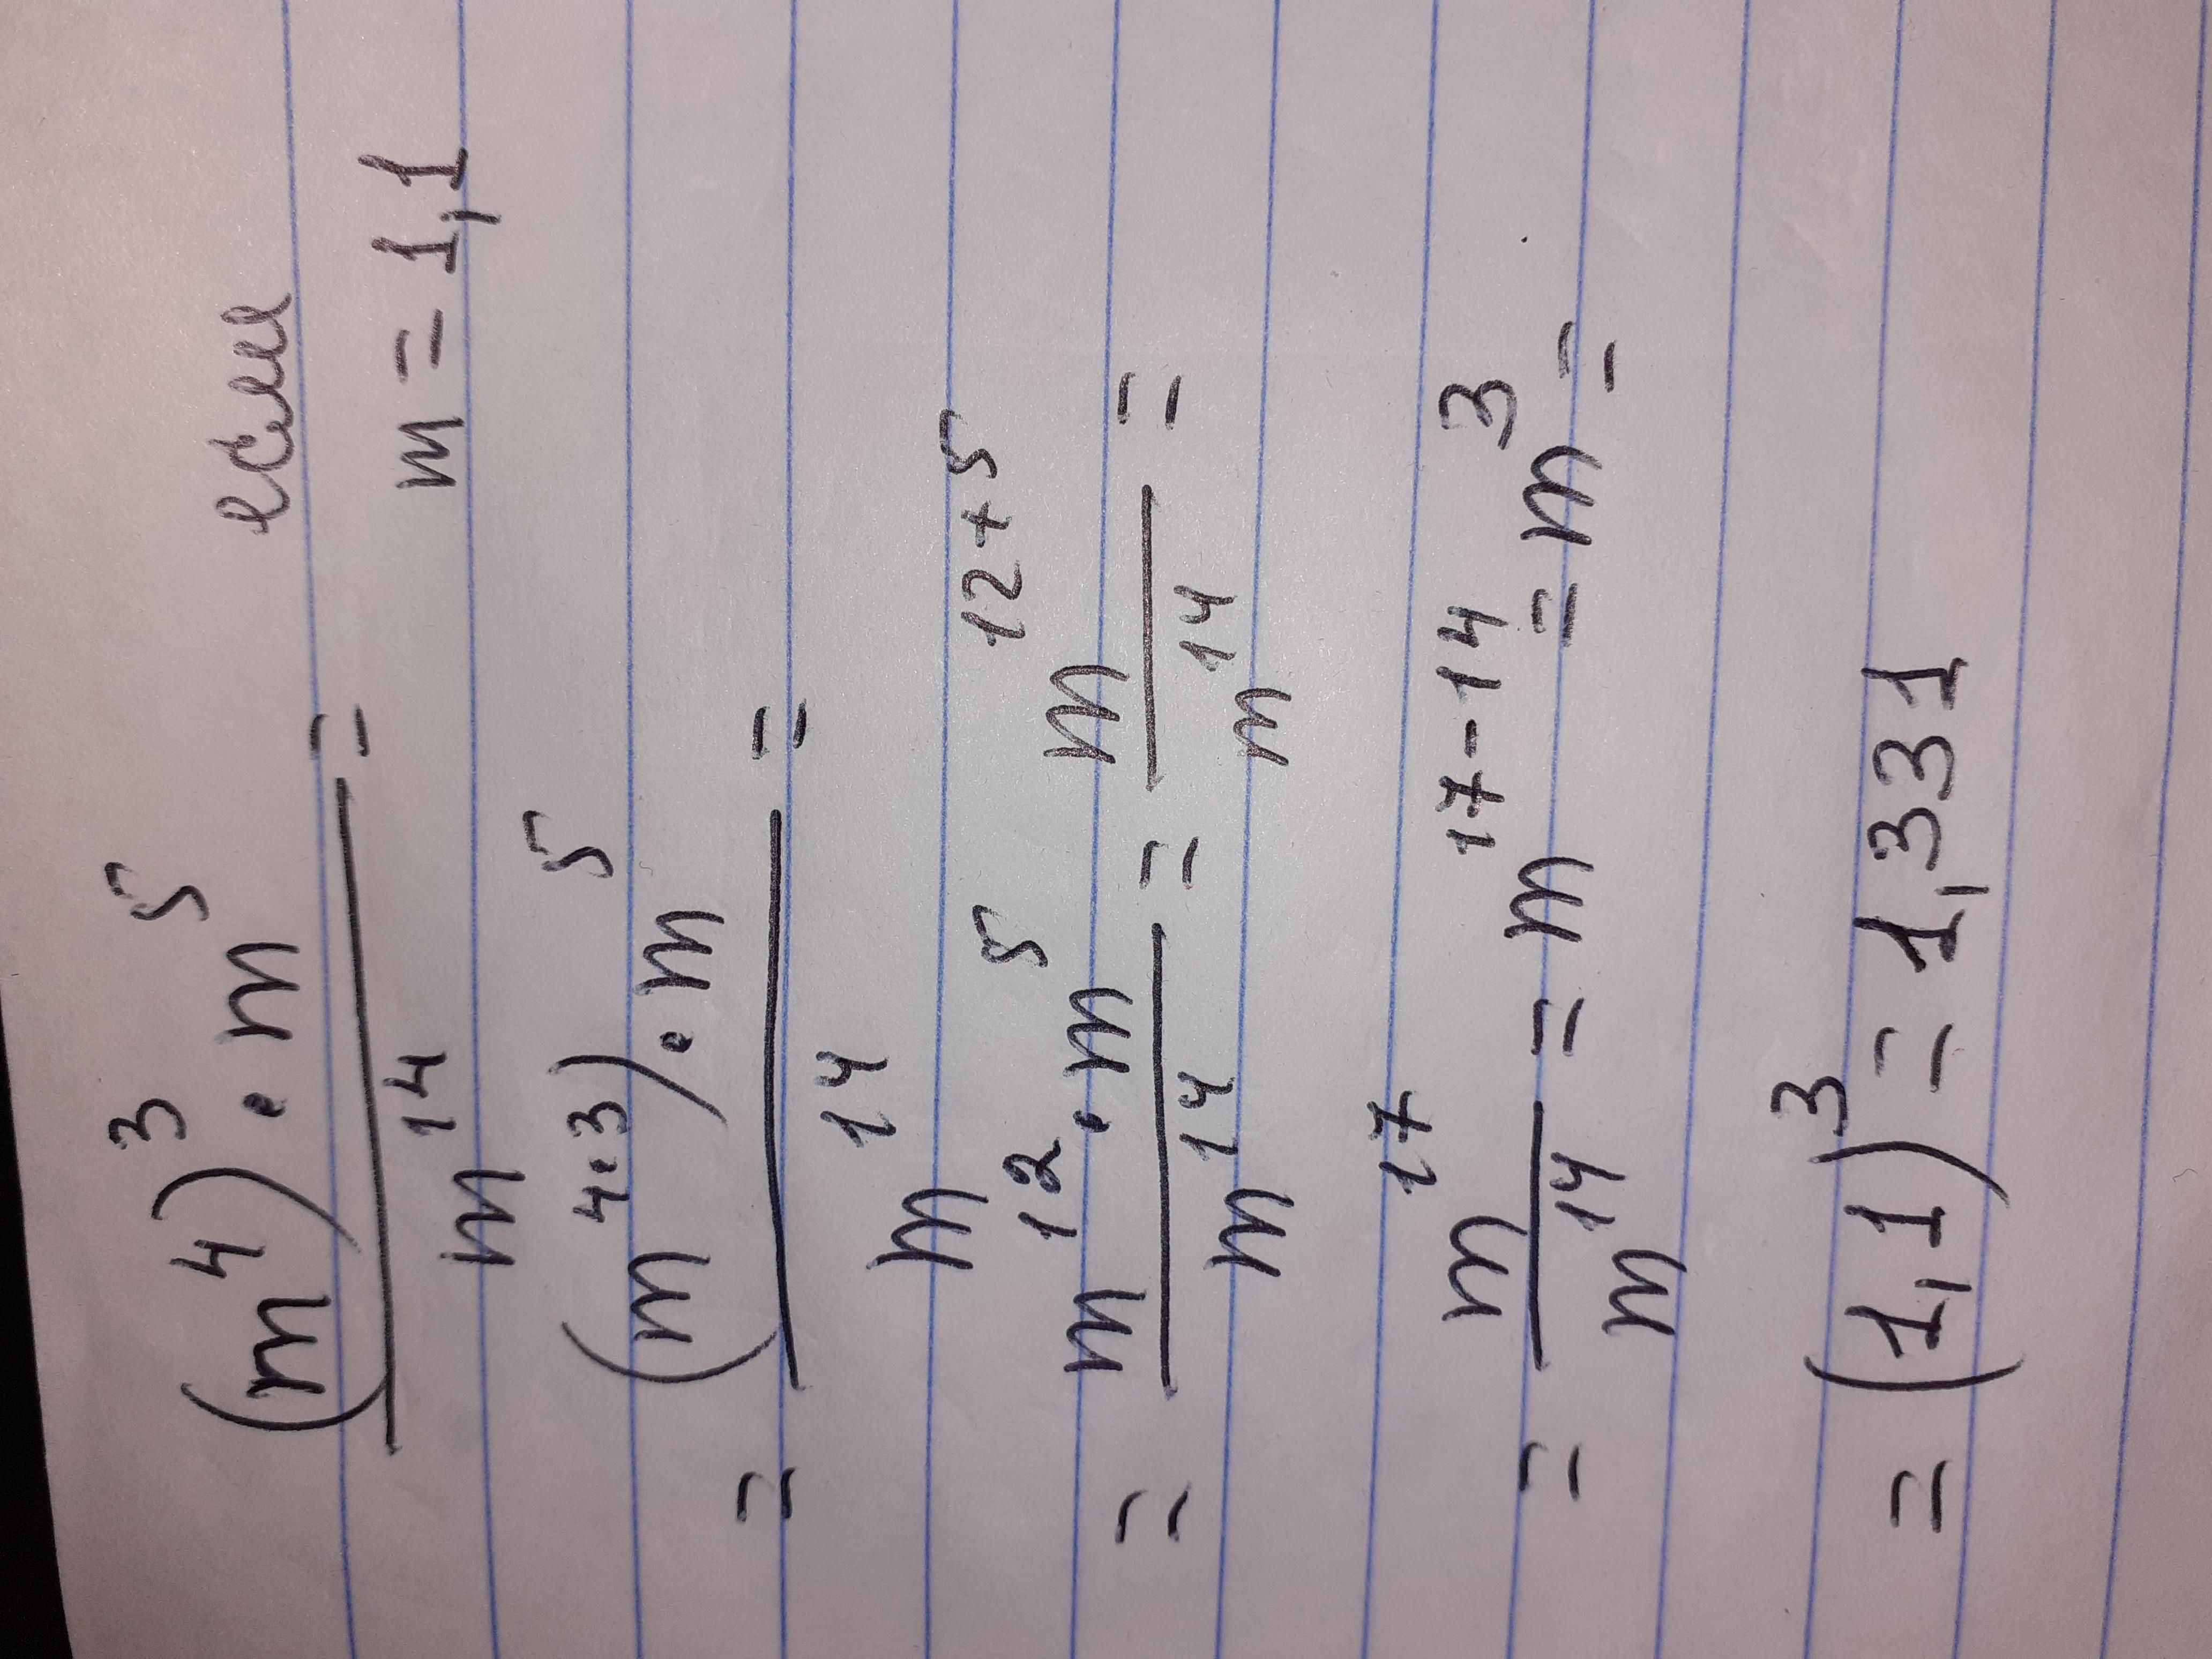 (m⁴)³ · m⁵ / m¹⁴ = если m = 1,1
= (m⁴·³) · m⁵ / m¹⁴ =
= m¹² · m⁵ / m¹⁴ = m¹²⁺⁵ / m¹⁴ =
= m¹⁷ / m¹⁴ = m¹⁷⁻¹⁴ = m³ =
= (1,1)³ = 1,331